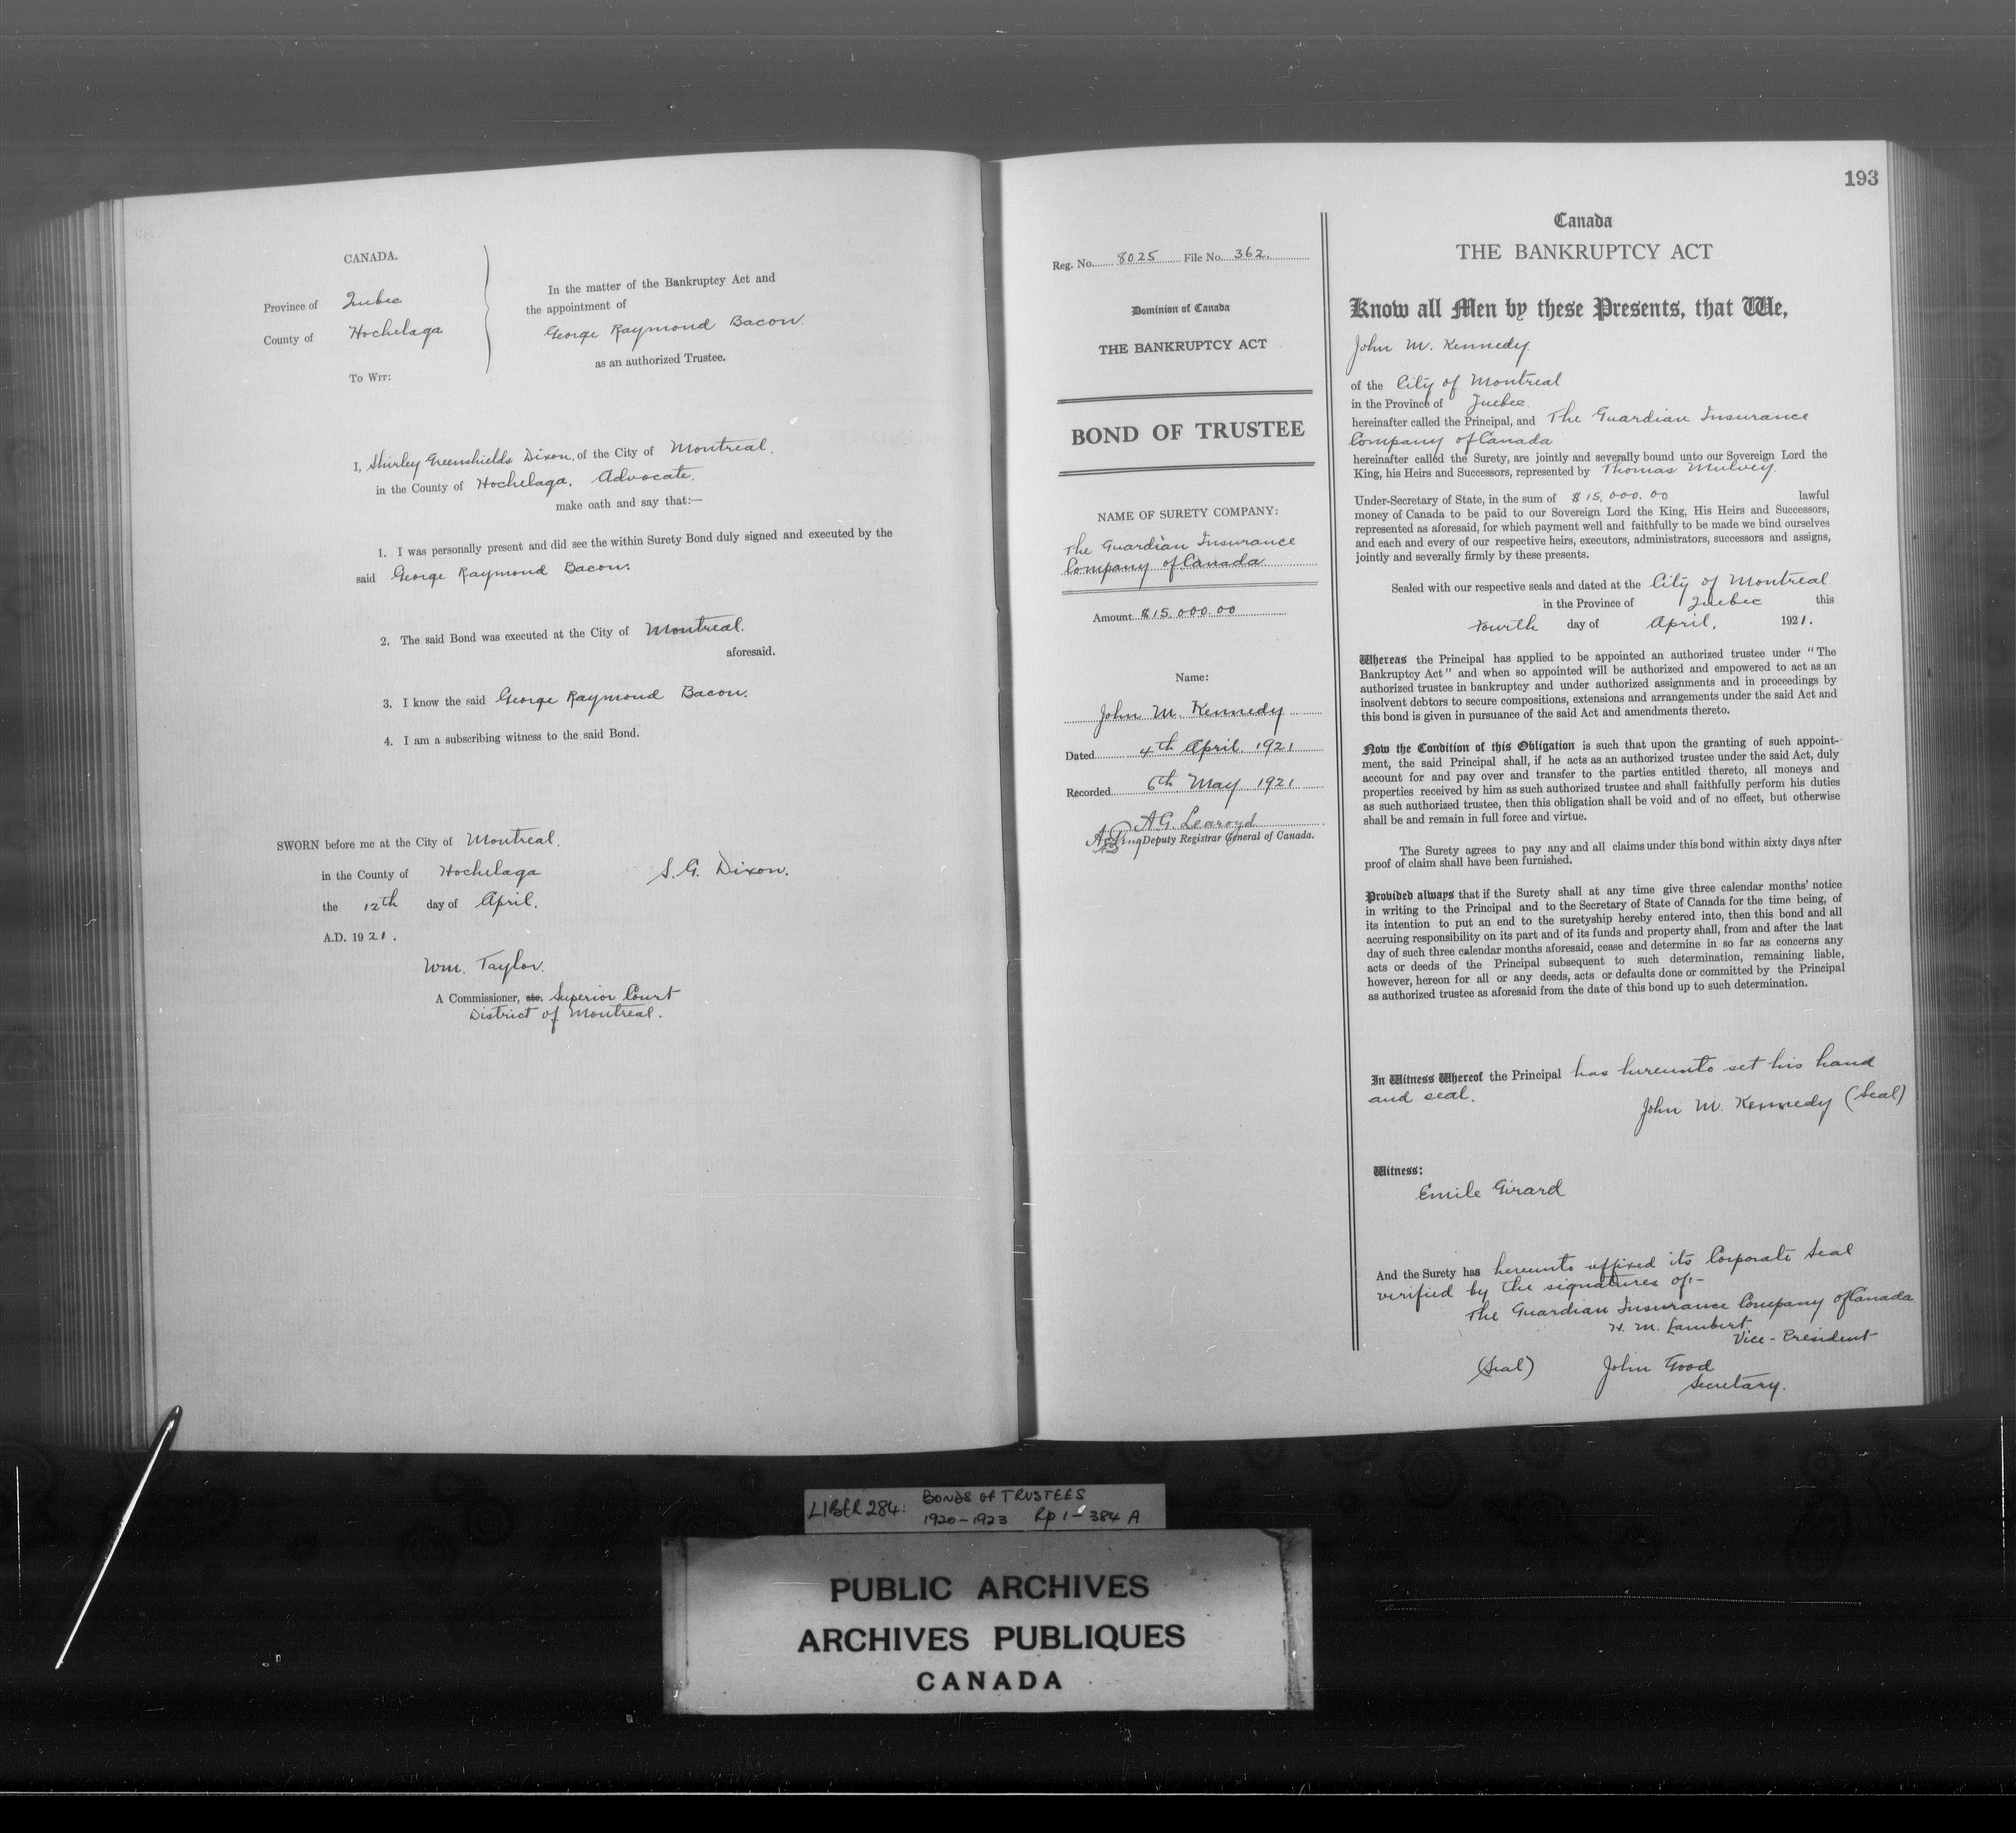 CANADA.
Province of Quebec
County of Hochelaga
To Wit:
In the matter of the Bankruptcy Act and
the appointment of
George Raymond Bacon.
as an authorized Trustee.
I, Shirley Greenshields Dixon, of the City of Montreal,
in the County of Hochelaga, Advocate,
make oath and say that:—
1. I was personally present and did see the within Surety Bond duly signed and executed by the
said George Raymond Bacon.
2. The said Bond was executed at the City of Montreal,
aforesaid.
3. I know the said George Raymond Bacon.
4. I am a subscribing witness to the said Bond.
SWORN before me at the City of Montreal,
in the County of Hochelaga
the 12th day of April,
A.D. 1921.
S. G. Dixon.
Wm. Taylor.
A Commissioner, etc. Superior Court
District of Montreal.
193
Reg. No. 8025 File No. 362.
Dominion of Canada
THE BANKRUPTCY ACT
BOND OF TRUSTEE
NAME OF SURETY COMPANY:
The Guardian Insurance
Company of Canada
Amount $15,000.00
Name:
John M. Kennedy
Dated 4th April, 1921
Recorded 6th May 1921
A.G. Learoyd
Deputy Registrar General of Canada.
Canada
THE BANKRUPTCY ACT
Know all Men by these Presents, that We,
John M. Kennedy
of the City of Montreal
in the Province of Quebec.
hereinafter called the Principal, and The Guardian Insurance
Company of Canada
hereinafter called the Surety, are jointly and severally bound unto our Sovereign Lord the
King, his Heirs and Successors, represented by Thomas Mulvey.
Under-Secretary of State, in the sum of $15,000.00 lawful
money of Canada to be paid to our Sovereign Lord the King, His Heirs and Successors,
represented as aforesaid, for which payment well and faithfully to be made we bind ourselves
and each and every of our respective heirs, executors, administrators, successors and assigns,
jointly and severally firmly by these presents.
Sealed with our respective seals and dated at the City of Montreal
in the Province of Quebec this
Fourth day of April, 1921.
Whereas the Principal has applied to be appointed an authorized trustee under "The
Bankruptcy Act" and when so appointed will be authorized and empowered to act as an
authorized trustee in bankruptcy and under authorized assignments and in proceedings by
insolvent debtors to secure compositions, extensions and arrangements under the said Act and
this bond is given in pursuance of the said Act and amendments thereto.
Now the Condition of this Obligation is such that upon the granting of such appoint-
ment, the said Principal shall, if he acts as an authorized trustee under the said Act, duly
account for and pay over and transfer to the parties entitled thereto, all moneys and
properties received by him as such authorized trustee and shall faithfully perform his duties
as such authorized trustee, then this obligation shall be void and of no effect, but otherwise
shall be and remain in full force and virtue.
The Surety agrees to pay any and all claims under this bond within sixty days after
proof of claim shall have been furnished.
Provided always that if the Surety shall at any time give three calendar months' notice
in writing to the Principal and to the Secretary of State of Canada for the time being, of
its intention to put an end to the suretyship hereby entered into, then this bond and all
accruing responsibility on its part and of its funds and property shall, from and after the last
day of such three calendar months aforesaid, cease and determine in so far as concerns any
acts or deeds of the Principal subsequent to such determination, remaining liable,
however, hereon for all or any deeds, acts or defaults done or committed by the Principal
as authorized trustee as aforesaid from the date of this bond up to such determination.
In Witness Whereof the Principal has hereunto set his hand
and seal.
John M. Kennedy (Seal)
Witness:
Emile Girard
And the Surety has hereunto affixed its Corporate Seal
verified by the signatures of:-
The Guardian Insurance Company of Canada
H. M. Lambert
Vice-President
(Seal) John Good
Secretary.
LIBER 284: BONDS OF TRUSTEES
1920-1923 Rp 1-384 A
PUBLIC ARCHIVES
ARCHIVES PUBLIQUES
CANADA